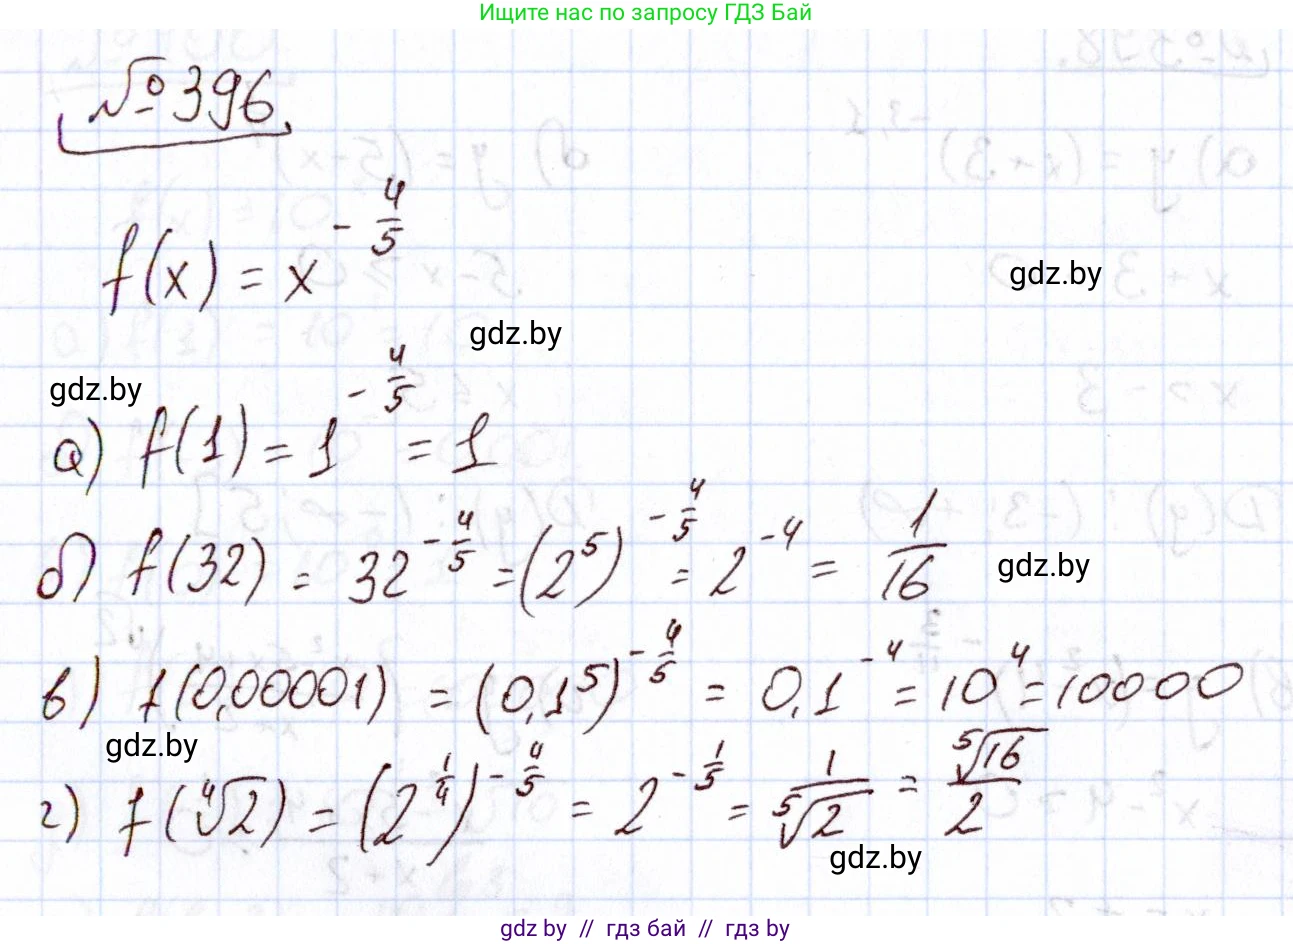 Ищите нас по запросу ГДЗ Бай
№396
f(x) = x^{-\frac{4}{5}}
gdz.by
gdz.by
gdz.by
а) f(1) = 1^{-\frac{4}{5}} = 1
б) f(32) = 32^{-\frac{4}{5}} = (2^5)^{-\frac{4}{5}} = 2^{-4} = \frac{1}{16}
gdz.by
в) f(0,00001) = (0,1^5)^{-\frac{4}{5}} = 0,1^{-4} = 10^4 = 10000
gdz.by
г) f(\sqrt[4]{2}) = (2^{\frac{1}{4}})^{-\frac{4}{5}} = 2^{-\frac{1}{5}} = \frac{1}{\sqrt[5]{2}} = \frac{\sqrt[5]{16}}{2}
gdz.by
gdz by // гдз бай // гдз by